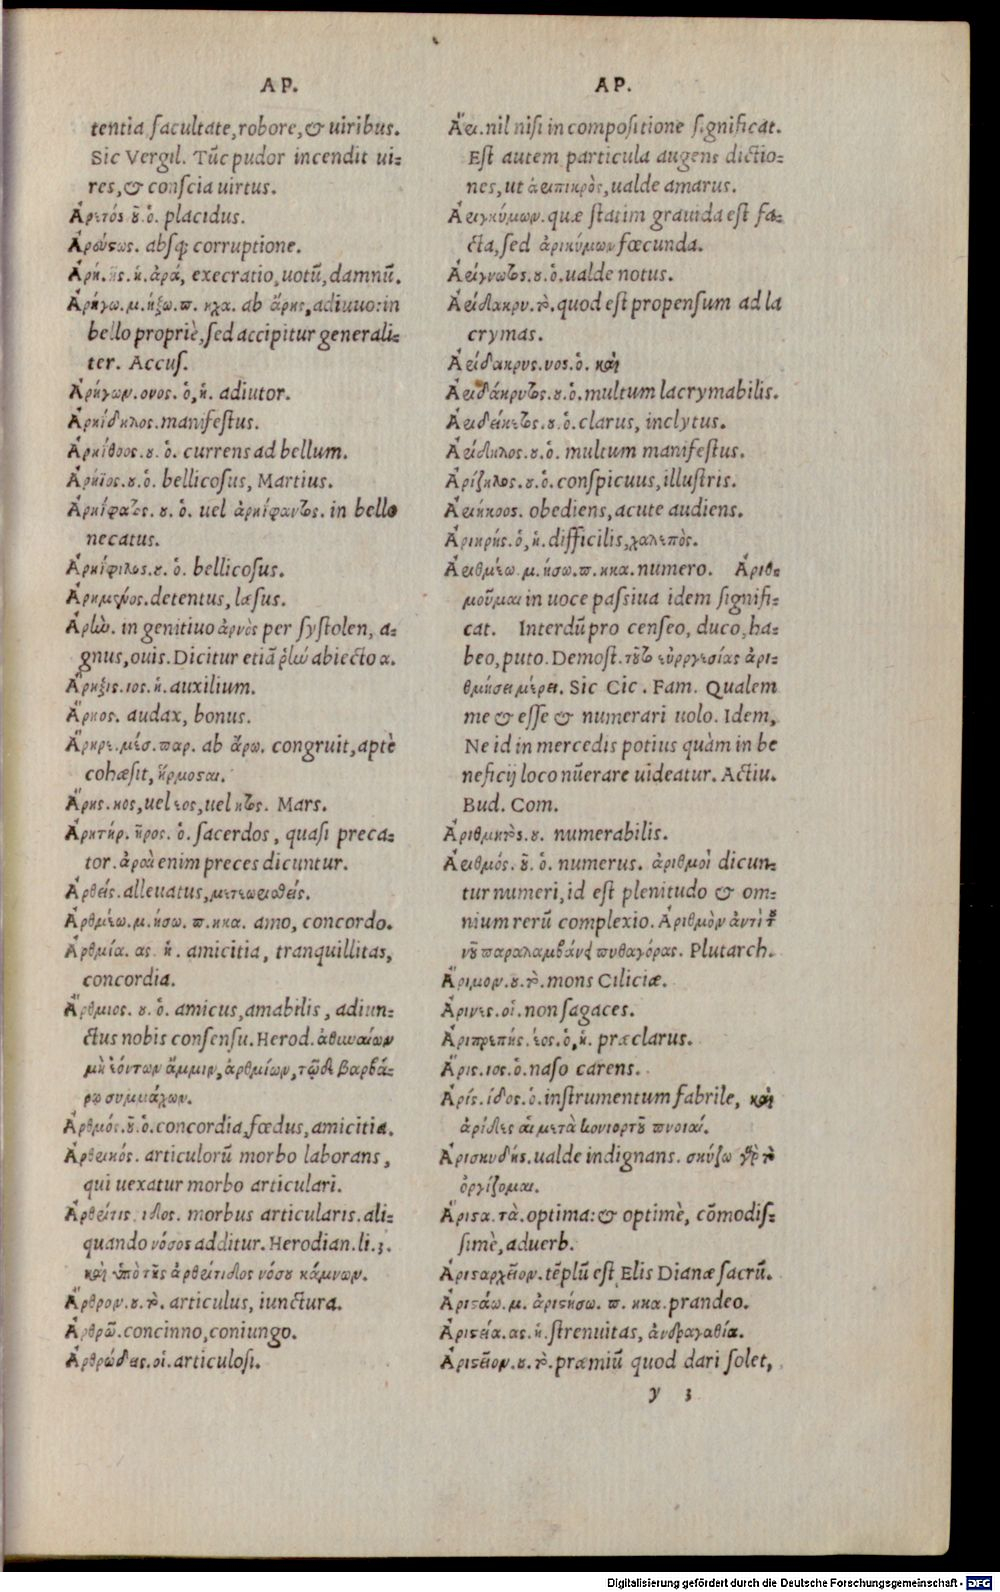 AP.
tentia facultate, robore, & uiribus.
Sic Vergil. Tũc pudor incendit ui=
res, & conscia uirtus.
Ἀρετός οῦ. ὁ. placidus.
absq; corruptione.
Ἀρή. ῆς. ἡ. ἀρά, execratio, uotũ, damnũ.
Ἀρήγω. μ. ήξω. π. ηχα. ab ἄρης, adiuuo: in
bello propriè, sed accipitur generali=
ter. Accus.
Ἀρήγων. ονος. ὁ, ἡ. adiutor.
Ἀρηίδηλος. manifestus.
Ἀρηίθοος. ου. ὁ. currens ad bellum.
Ἀρήϊος. ου. ὁ. bellicosus, Martius.
Ἀρηίφατος. ου. ὁ. uel ἀρηίφαντος. in bello
necatus.
Ἀρηίφιλος. ου. ὁ. bellicosus.
Ἀρημένος. detentus, læsus.
Ἀρὴν. in genitiuo ἀρνὸς per systolen, a=
gnus, ouis. Dicitur etiã ῥὴν abiecto α.
Ἄρηξις. ιος. ἡ. auxilium.
Ἄρηος. audax, bonus.
Ἄρηρε. μέσ. παρ. ab ἄρω. congruit, aptè
cohæsit, ἥρμοσαι.
Ἄρης. ηος, uel εος, uel ητος. Mars.
Ἀρητήρ. ῆρος. ὁ. sacerdos, quasi preca=
tor. ἀραὰ enim preces dicuntur.
Ἀρθείς. alleuatus, μετεωρισθείς.
Ἀρθμέω. μ. ήσω. π. ηκα. amo, concordo.
Ἀρθμία. ας. ἡ. amicitia, tranquillitas,
concordia.
Ἄρθμιος. ου. ὁ. amicus, amabilis, adiun=
ctus nobis consensu. Herod. ἀθηναίων
μὴ ἐόντων ἄμμιν, ἀρθμίων, τῷδε βαρβά=
ρῳ συμμάχων.
Ἀρθμός. οῦ. ὁ. concordia, fœdus, amicitia.
Ἀρθρικός. articulorũ morbo laborans,
qui uexatur morbo articulari.
Ἀρθρίτις. ιδος. morbus articularis. ali=
quando νόσος additur. Herodian. li. 3.
καὶ ὑπὸ τῆς ἀρθρίτιδος νόσου κάμνων.
Ἄρθρον. ου. τὸ. articulus, iunctura.
Ἀρθρῶ. concinno, coniungo.
Ἀρθρώδεις. οἱ. articulosi.
AP.
Ἄρι. nil nisi in compositione significat.
Est autem particula augens dictio=
nes, ut ἀριπικρὸς, ualde amarus.
Ἀριγκύμων. quæ statim grauida est fa=
cta, sed ἀρικύμων fœcunda.
Ἀρίγνωτος. ου. ὁ. ualde notus.
Ἀρίδακρυ. τὸ. quod est propensum ad la
crymas.
Ἀρίδακρυς. υος. ὁ. καὶ
Ἀριδάκρυτος. ου. ὁ. multum lacrymabilis.
Ἀριδείκετος. ου. ὁ. clarus, inclytus.
Ἀρίδηλος. ου. ὁ. multum manifestus.
Ἀρίζηλος. ου. ὁ. conspicuus, illustris.
Ἀριήκοος. obediens, acute audiens.
Ἀρικρής. ὁ, ἡ. difficilis, χαλεπὸς.
Ἀριθμέω. μ. ήσω. π. ηκα. numero. Ἀριθ=
μοῦμαι in uoce passiua idem signifi=
cat. Interdũ pro censeo, duco, ha=
beo, puto. Demost. τοῦτο εὐργεσίας ἀρι=
θμήσει μέρει. Sic Cic. Fam. Qualem
me & esse & numerari uolo. Idem,
Ne id in mercedis potius quàm in be
neficij loco nũerare uideatur. Actiu.
Bud. Com.
Ἀριθμητὸς. ου. numerabilis.
Ἀριθμός. οῦ. ὁ. numerus. ἀριθμοὶ dicun=
tur numeri, id est plenitudo & om=
nium rerũ complexio. Ἀριθμὸν ἀντὶ τοῦ
νοῦ παραλαμβάνει πυθαγόρας. Plutarch.
Ἄριμον. ου. τὸ. mons Ciliciæ.
Ἄρινες. οἱ. non sagaces.
Ἀριπρεπής. έος. ὁ, ἡ. præclarus.
Ἄρις. ιος. ὁ. naso carens.
Ἀρίς. ίδος. ὁ. instrumentum fabrile, καὶ
ἀρίδες αἱ μετὰ κονιορτοῦ πνοιαί.
Ἀρισκυδής. ualde indignans. σκύζω γὰρ τὸ
ὀργίζομαι.
Ἄριστα. τὰ. optima: & optimè, cõmodis=
simè, aduerb.
Ἀρισταρχεῖον. tẽplũ est Elis Dianæ sacrũ.
Ἀριστάω. μ. ἀριστήσω. π. ηκα. prandeo.
Ἀριστεία. ας. ἡ. strenuitas, ἀνδραγαθία.
Ἀριστεῖον. ου. τὸ. præmiũ quod dari solet,
y 3
Digitalisierung gefördert durch die Deutsche Forschungsgemeinschaft - DFG